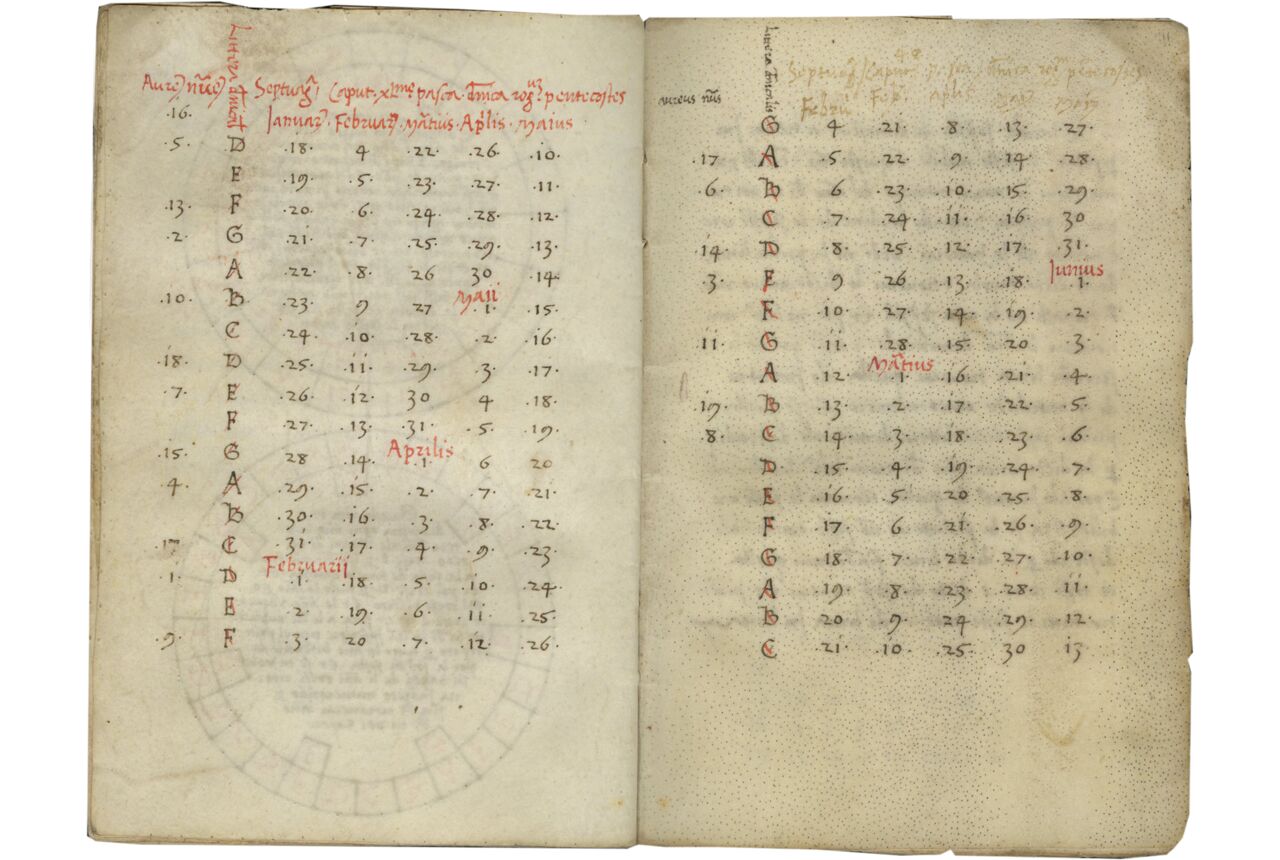 Littera dnical
Aureꝰ nūeꝰ Septuagᷓ. Caput. xlme. pasca. dnica rogꝰ. pentecostes
.16. Januar. Februar. Martius. Aplis. Maius
.5. D .18. 4 .22. .26. .10.
E .19. .5. .23. .27. .11.
.13. F .20. .6. .24. .28. .12.
.2. G .21. .7. .25. .29. .13.
A .22. .8. 26 30 .14.
Maii
.10. B .23. 9 27 .1. .15.
C .24. .10. .28. .2. .16.
.18. D .25. .11. .29. .3. .17.
.7. E .26. .12. 30 4 .18.
F .27. .13. .31. .5. .19.
Aprilis
.15. G 28 .14. .1. 6 20
.4. A .29. .15. .2. .7. .21.
B .30. .16. .3. .8. .22.
.17. C .31. .17. .4. .9. .23.
Februarii
.1. D .1. .18. .5. .10. .24.
E .2. .19. .6. .11. .25.
.9. F .3. 20 .7. .12. .26.
11
Littera dnicalis
48
Septuagᷓ. Caput pasca dnica rog pentecostes
aureus nūs Febru Feb. apli mai maiꝰ
G 4 .21. .8. .13. .27.
.17. A .5. .22. .9. .14. .28.
.6. B 6 .23. .10. .15. .29.
C .7. .24. .11. .16. 30
.14. D .8. .25. .12. .17. .31.
Junius
.3. E 9 26 .13. .18. .1.
F .10. .27. .14. .19. .2.
.11. G .11. .28. .15. .20 .3.
Martius
A .12. .1. .16. .21. .4.
.19. B .13. .2. .17. .22. .5.
.8. C .14. .3. .18. .23. .6.
D .15. .4. .19. .24. .7.
E .16. .5. .20. .25. .8.
F .17. 6 .21. .26. .9.
G .18. .7. .22. .27. .10.
A .19. .8. .23. .28. .11.
B .20. .9. .24. .29. .12.
C .21. .10. .25. 30 .13.